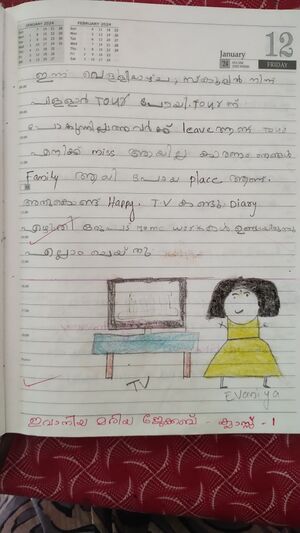 JANUARY 2024 FEBRUARY 2024
January 12
FRIDAY
ഇന്ന് വെള്ളിയാഴ്ച, സ്കൂളിൽ നിന്ന്
പിള്ളേർ Tour പോയി. Tour ന്
പോകുന്നില്ലാത്തവർക്ക് leave ആണ്. Tour
എനിക്ക് നഷ്ട ആയില്ല കാരണം ഞങ്ങൾ
Family ആയി പോയ place ആണ്.
അതുകൊണ്ട് Happy. TV കണ്ടു Diary
എഴുതി ഒരുപാട് Home works ഉണ്ടായിരുന്നു
എല്ലാം ചെയ്തു
TV
Evaniya
ഇവാനിയ മരിയ ജേക്കബ് - ക്ലാസ്സ് - 1